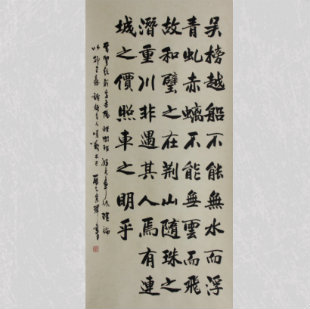 吳榜越船不能無水而浮
青虬赤螭不能無雲而飛
故和璧之在荆山隨珠之
潛重川非遇其人焉有連
城之價照車之明乎